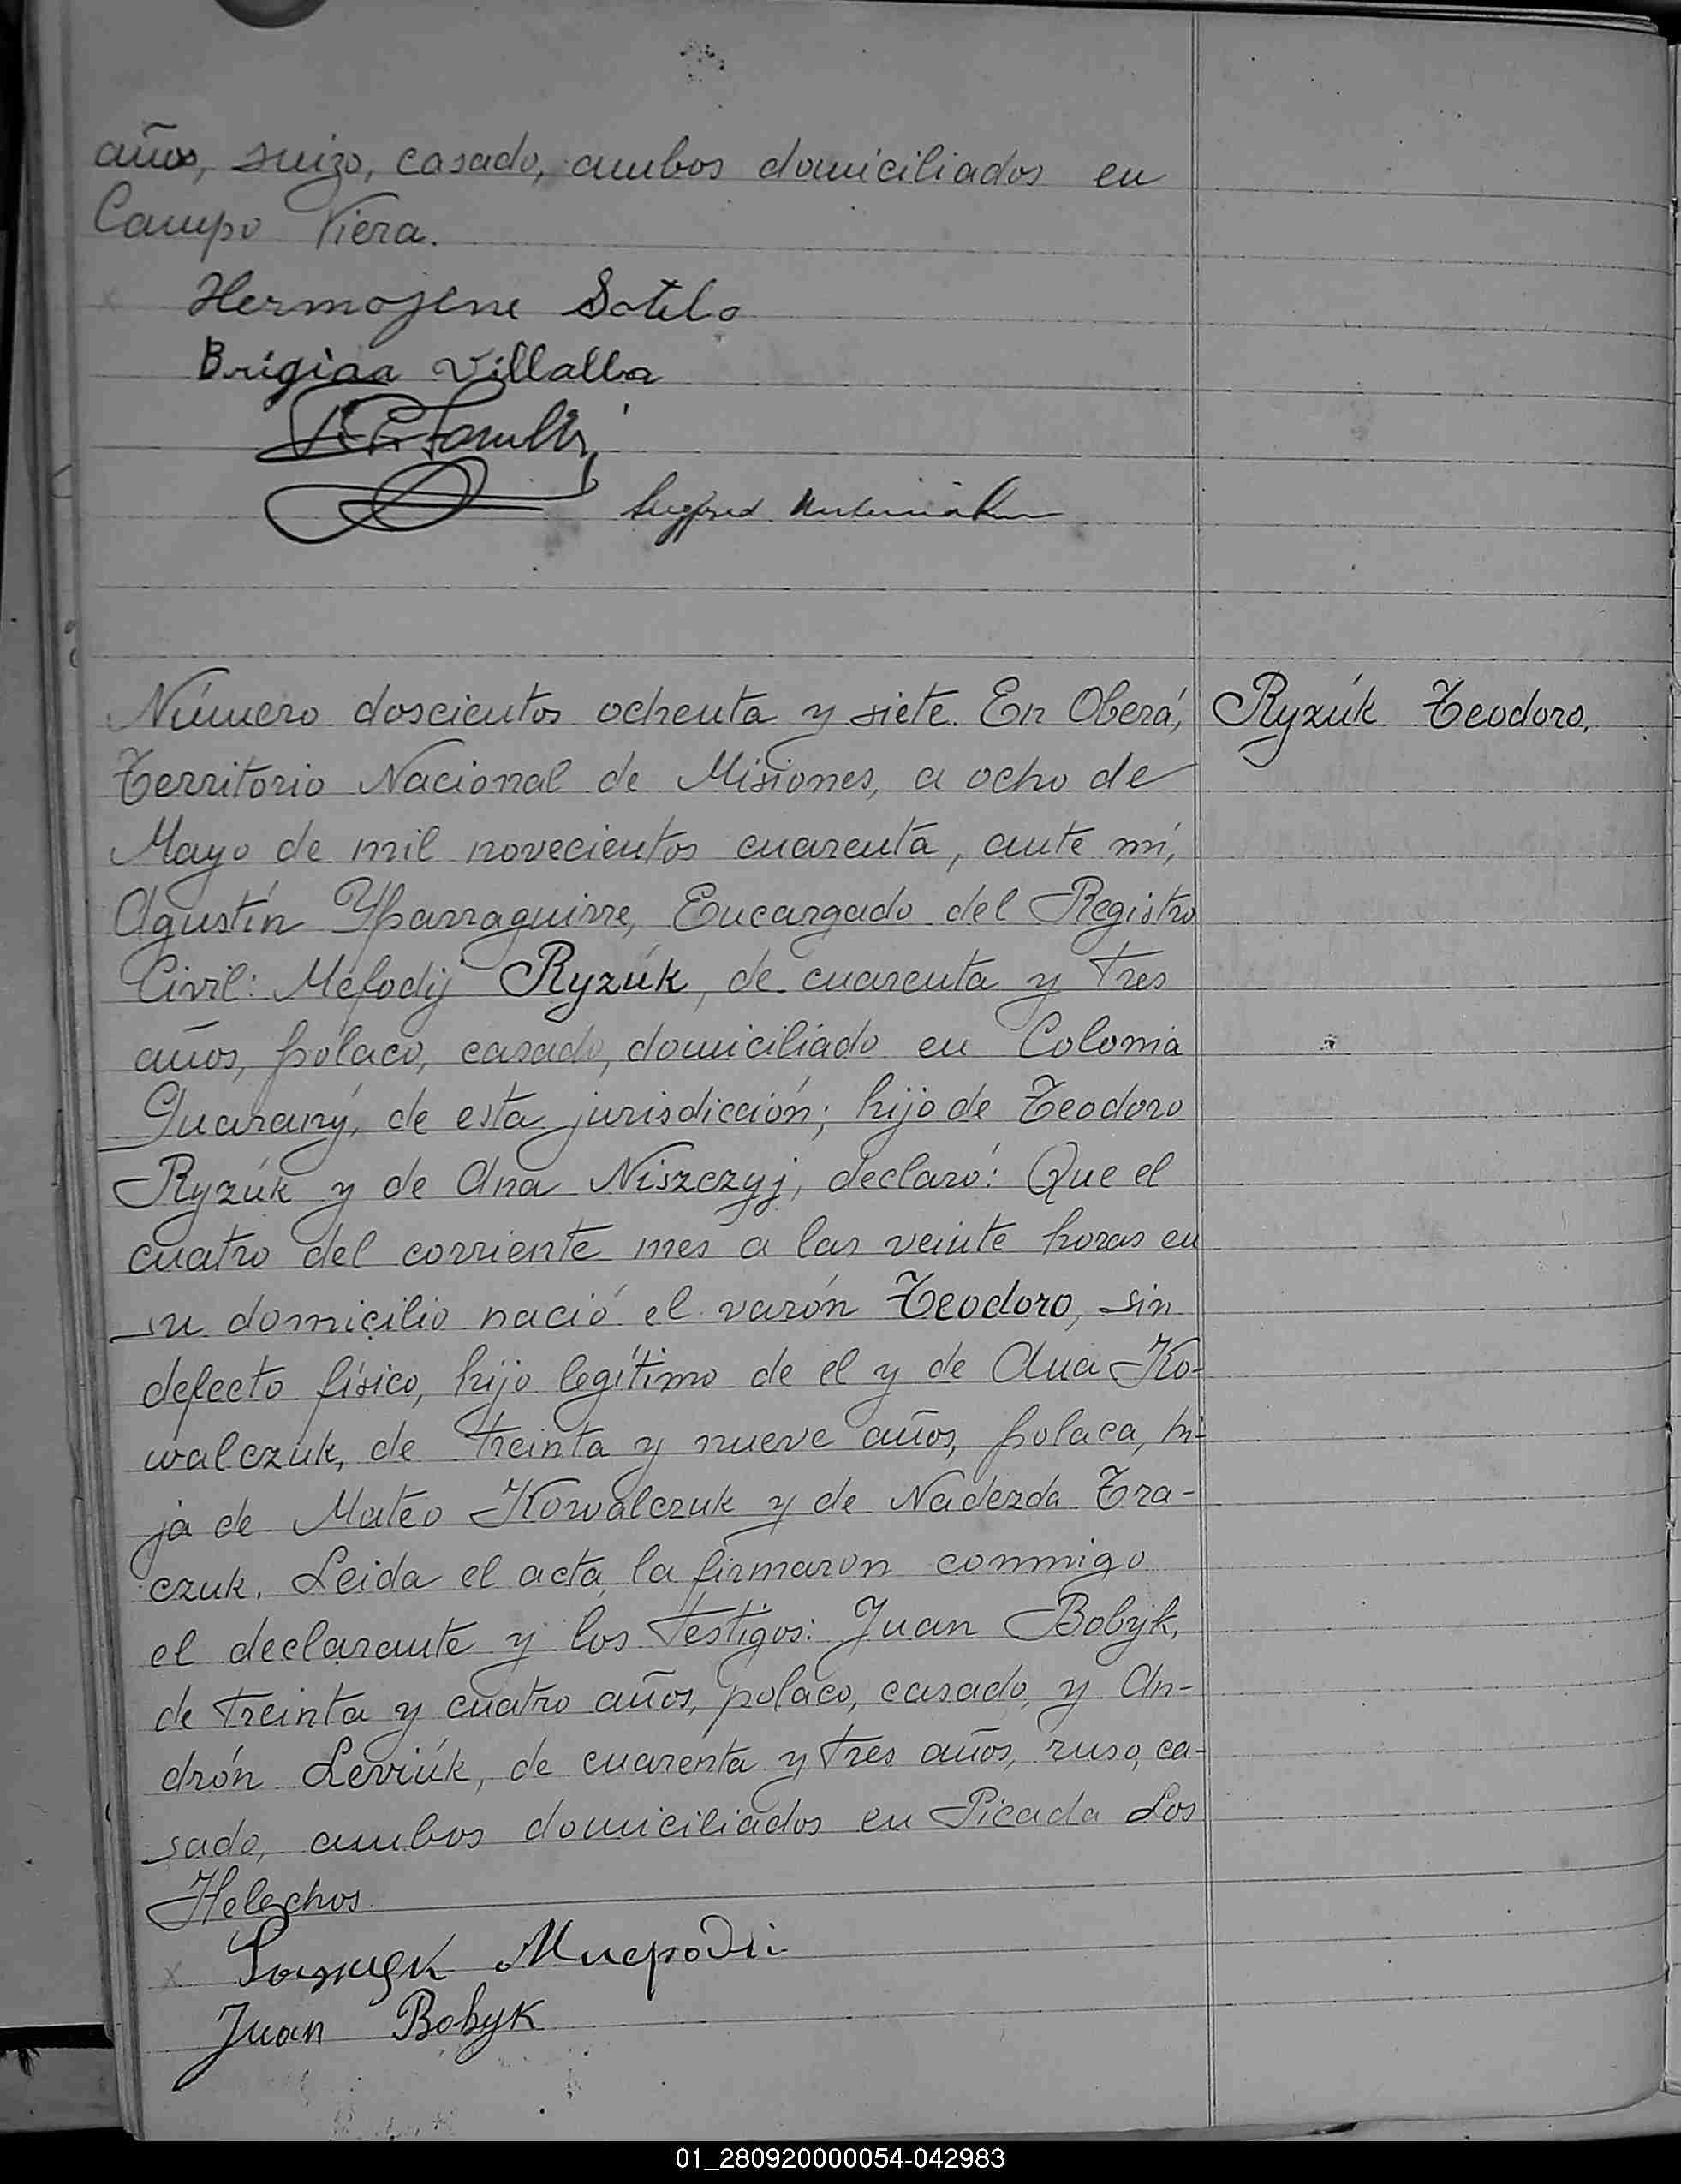 años, suizo, casado, ambos domiciliados en
Campo Viera.
Hermojene Sotelo
Brigiaa Villalba
Número doscientos ochenta y siete. En Oberá,
Ryzúk Teodoro.
Territorio Nacional de Misiones, a ocho de
Mayo de mil novecientos cuarenta, ante mí,
Agustín Yparraguirre, Encargado del Registro
Civil: Mefodij Ryzúk, de cuarenta y tres
años, polaco, casado, domiciliado en Colonia
Guarany, de esta jurisdicción; hijo de Teodoro
Ryzúk y de Ana Niszczyj, declaró: Que el
cuatro del corriente mes a las veinte horas en
su domicilio nació el varón Teodoro, sin
defecto físico, hijo legítimo de el y de Ana Ko-
walczuk, de treinta y nueve años, polaca, hi-
ja de Mateo Kowalczuk y de Nadezda Tra-
czuk. Leida el acta, la firmaron conmigo
el declarante y los testigos: Juan Bobyk,
de treinta y cuatro años, polaco, casado, y An-
drón Leviúk, de cuarenta y tres años, ruso, ca-
sado, ambos domiciliados en Picada Los
Helechos
Juan Bobyk
01_280920000054-042983